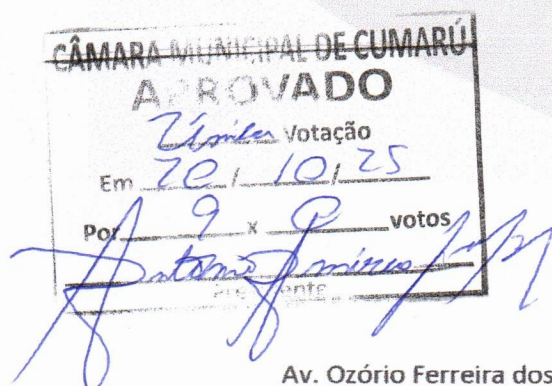 CÂMARA MUNICIPAL DE CUMARÚ
APROVADO
Única Votação
Em 20 / 10 / 25
Por 9 x 0 votos
Antonio
Presidente
Av. Ozório Ferreira dos